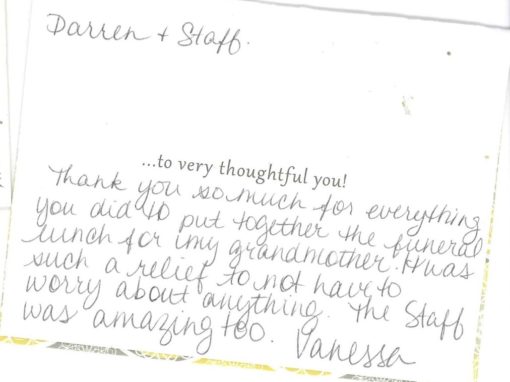 Darren + Staff.
...to very thoughtful you!
Thank you so much for everything
you did to put together the funeral
lunch for my grandmother. It was
such a relief to not have to
worry about anything. The Staff
was amazing too. Vanessa